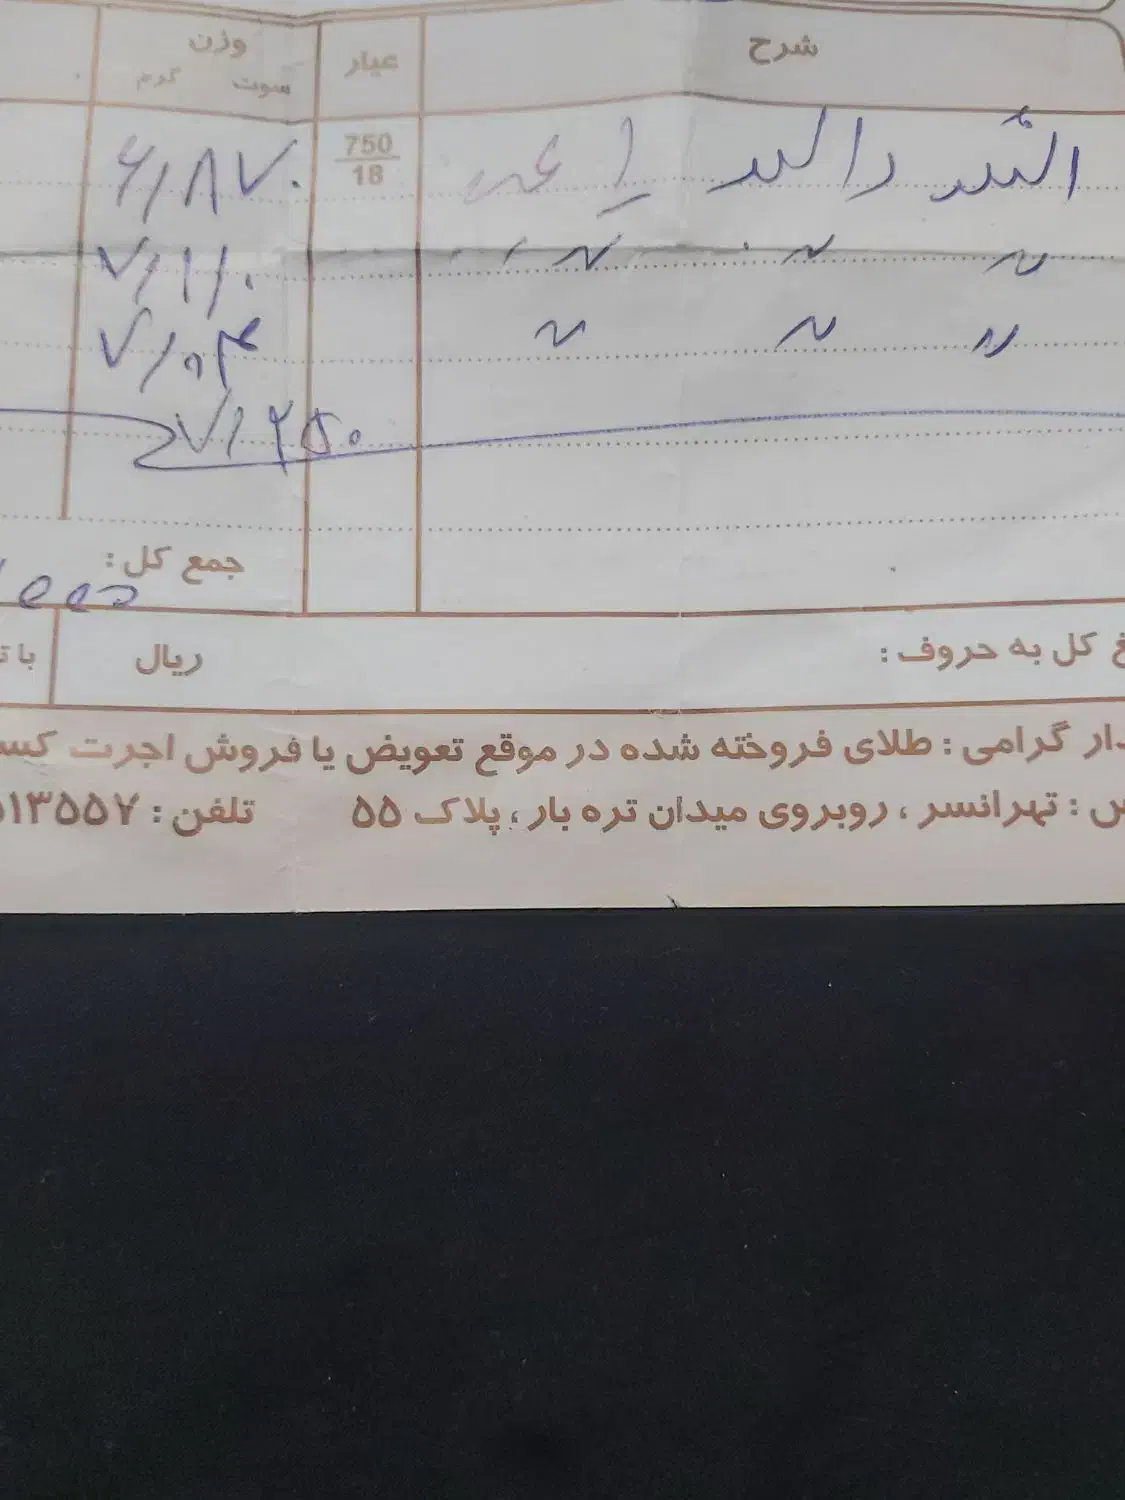 شرح عیار وزن
سوت گرم
النگو دالبر ۱ عدد 750 ۶/۸۷۰
18
〃 〃 〃 ۷/۱۱۰
〃 〃 〃 ۷/۰۴
۷/۲۵۰
جمع کل :
کل به حروف : ریال
گرامی : طلای فروخته شده در موقع تعویض یا فروش اجرت
تهرانسر ، روبروی میدان تره بار ، پلاک ۵۵ تلفن : ۱۳۵۵۷